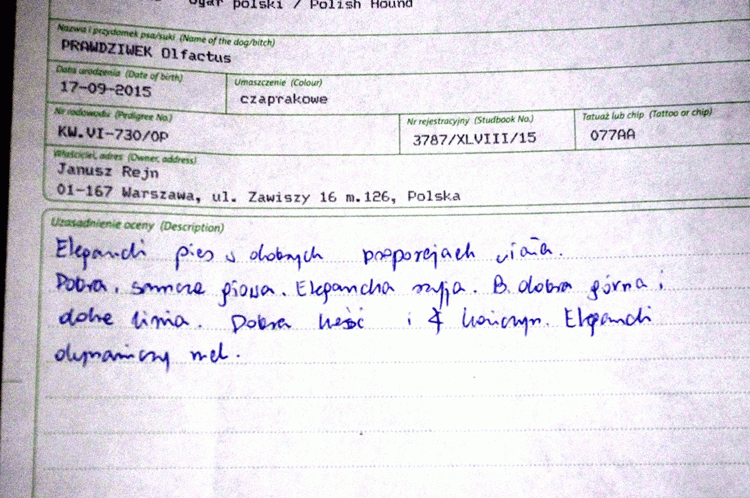 Ogar polski / Polish Hound
Nazwa i przydomek psa/suki (Name of the dog/bitch)
PRAWDZIWEK Olfactus
Data urodzenia (Date of birth)
17-09-2015
Umaszczenie (Colour)
czaprakowe
Nr rodowodu (Pedigree No.)
KW.VI-730/OP
Nr rejestracyjny (Studbook No.)
3787/XLVIII/15
Tatuaż lub chip (Tattoo or chip)
077AA
Właściciel, adres (Owner, address)
Janusz Rejn
01-167 Warszawa, ul. Zawiszy 16 m.126, Polska
Uzasadnienie oceny (Description)
Elegancki pies o dobrych proporcjach ciała.
Dobra, samcza głowa. Elegancka szyja. B. dobra górna i
dolne linia. Dobra kość i kończyn. Elegancki
dynamiczny